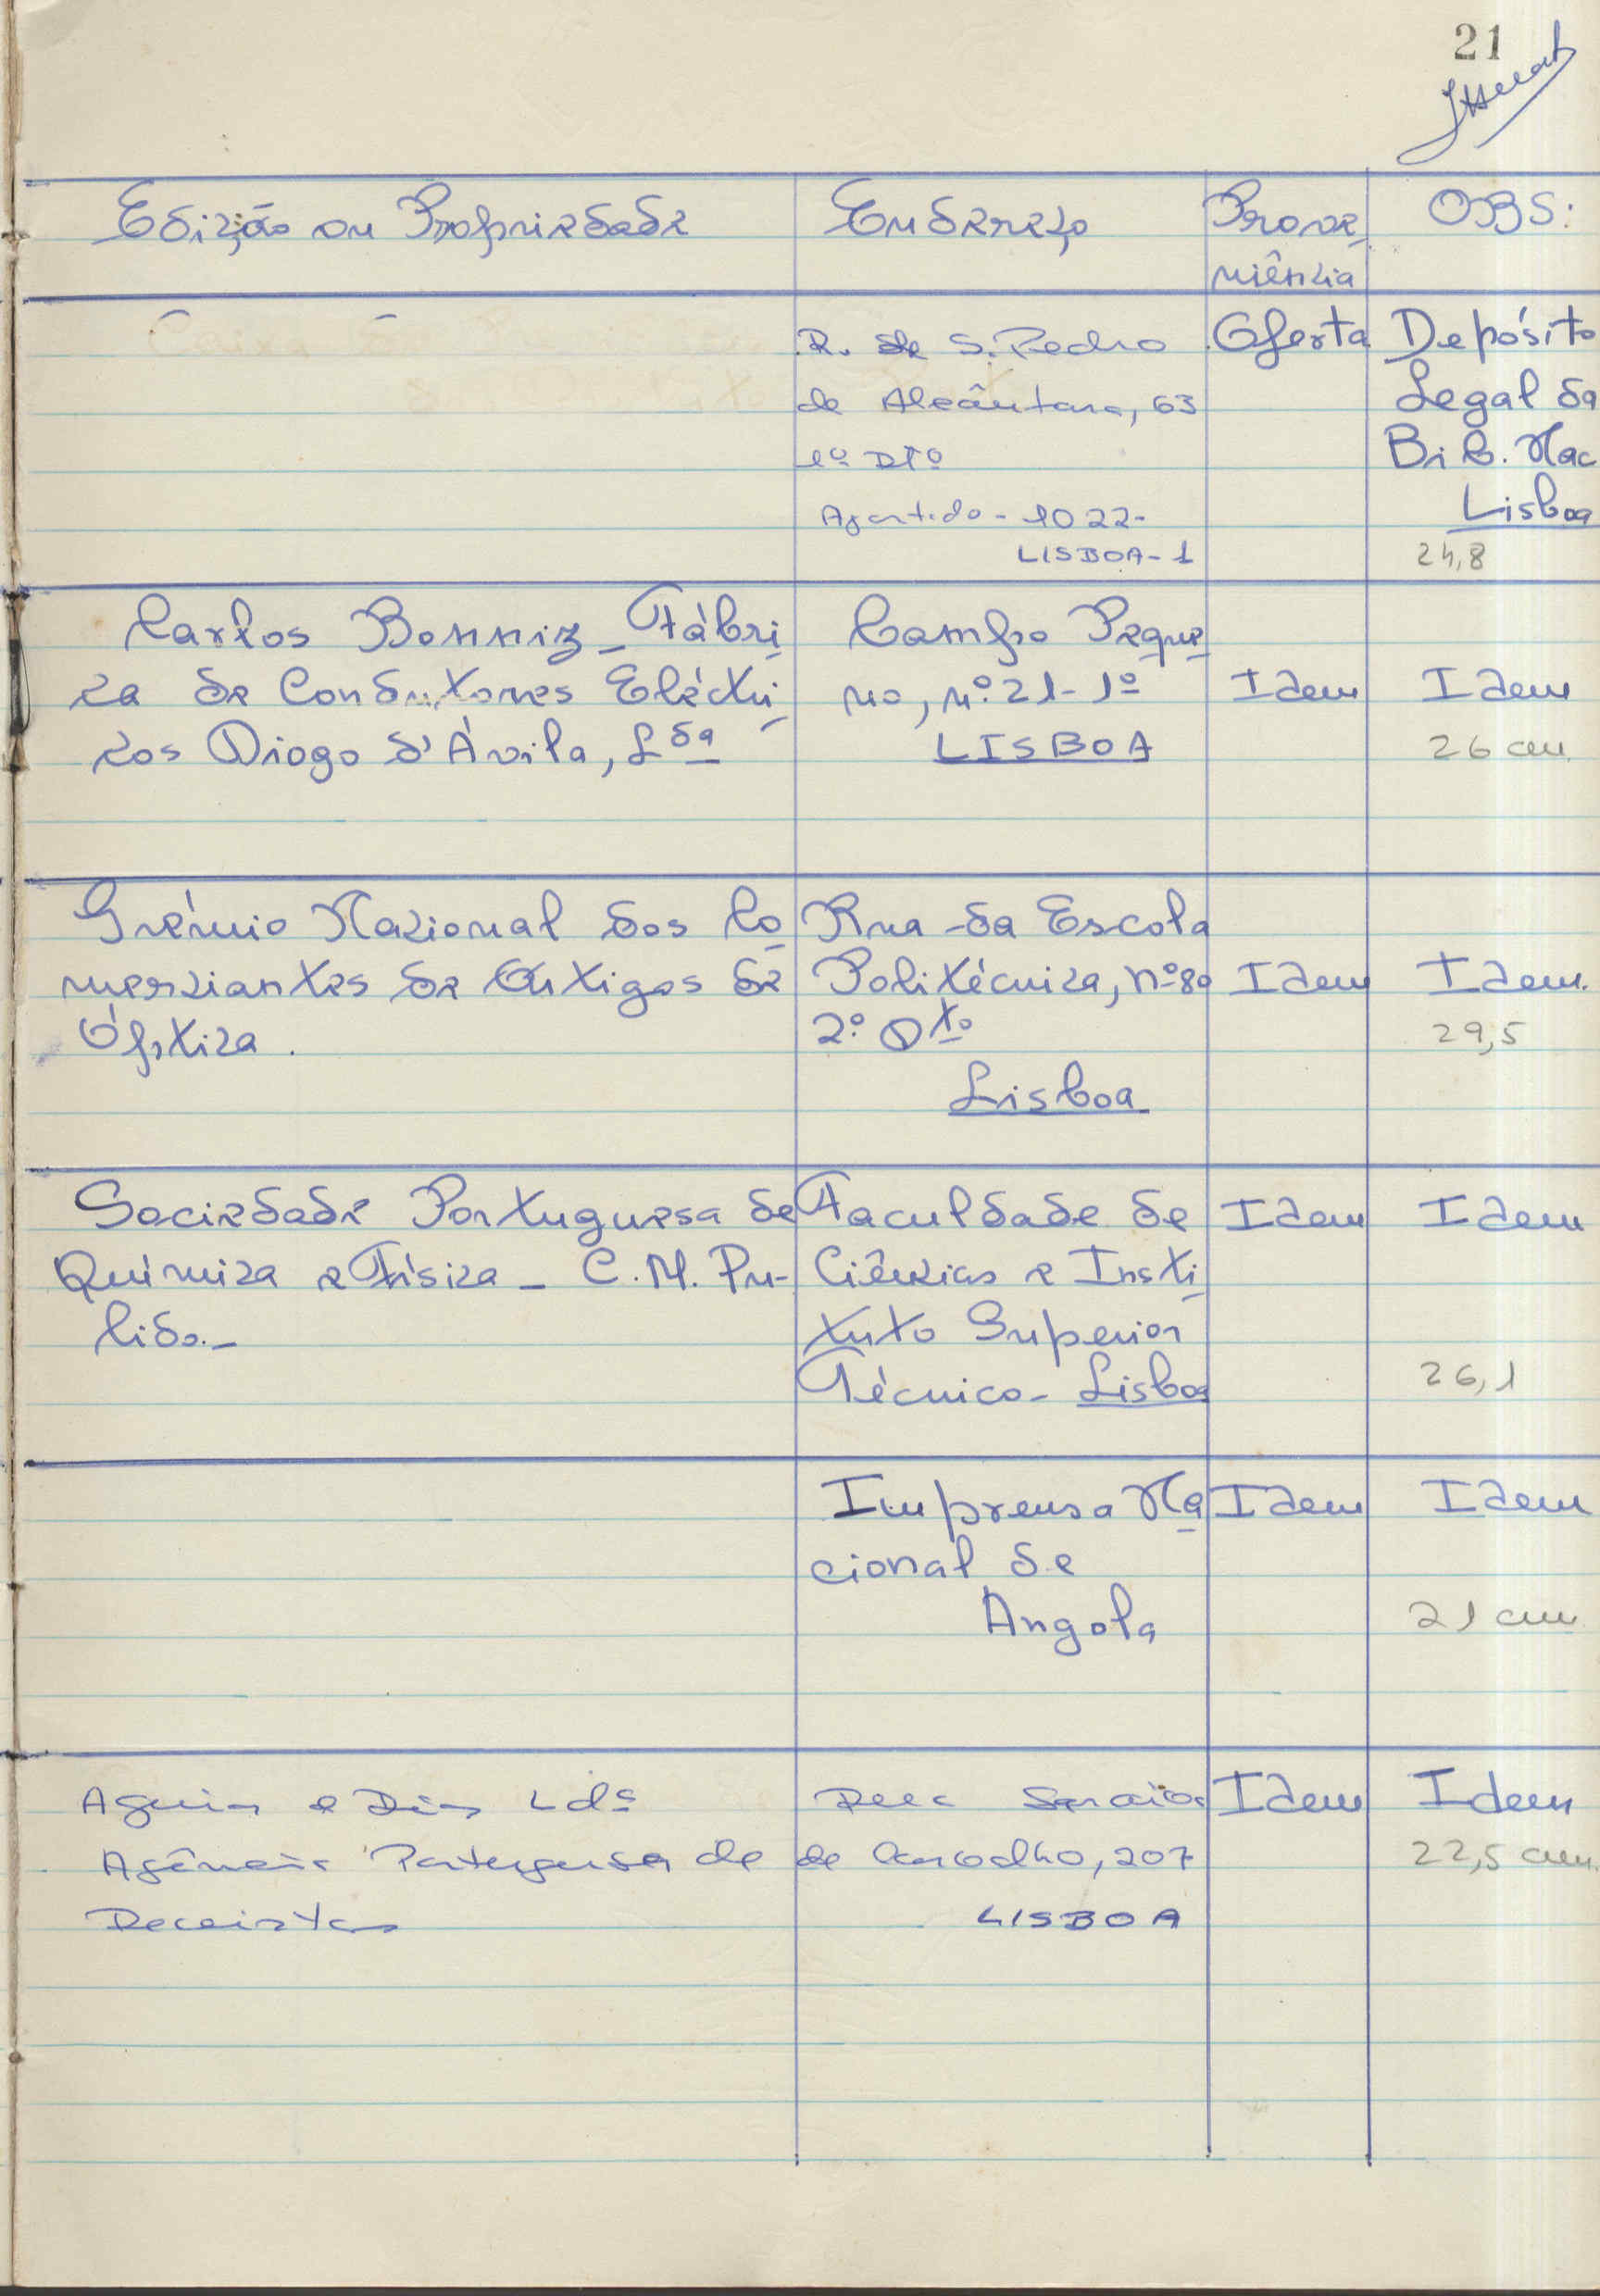 21
Edição ou Propriedade Endereço Prove OBS:
niência
R. de S. Pedro Oferta Depósito
de Alcântara, 63 Legal da
1º DTº Bib. Nac
Apartado - 1022 - Lisboa
LISBOA - 1 24,8
Carlos Bonniz - Fábri Campo Peque
ca de Condutores Eléctri no, nº 21 - 1º Idem Idem
cos Diogo d'Ávila, Lda LISBOA 26 cm
Grémio Nacional dos Co Rua da Escola
merciantes de Artigos de Politécnica, nº 80 Idem Idem.
Óptica. 2º Dto 29,5
Lisboa
Sociedade Portuguesa de Faculdade de Idem Idem
Química e Física - C. M. Pu- Ciências e Insti
lido. - tuto Superior
Técnico - Lisboa 26,1
Imprensa Na Idem Idem
cional de
Angola 21 cm
Aguiar e Dias Lda Saraiva Idem Idem
Agência Portuguesa de de Carvalho, 207 22,5 cm.
LISBOA